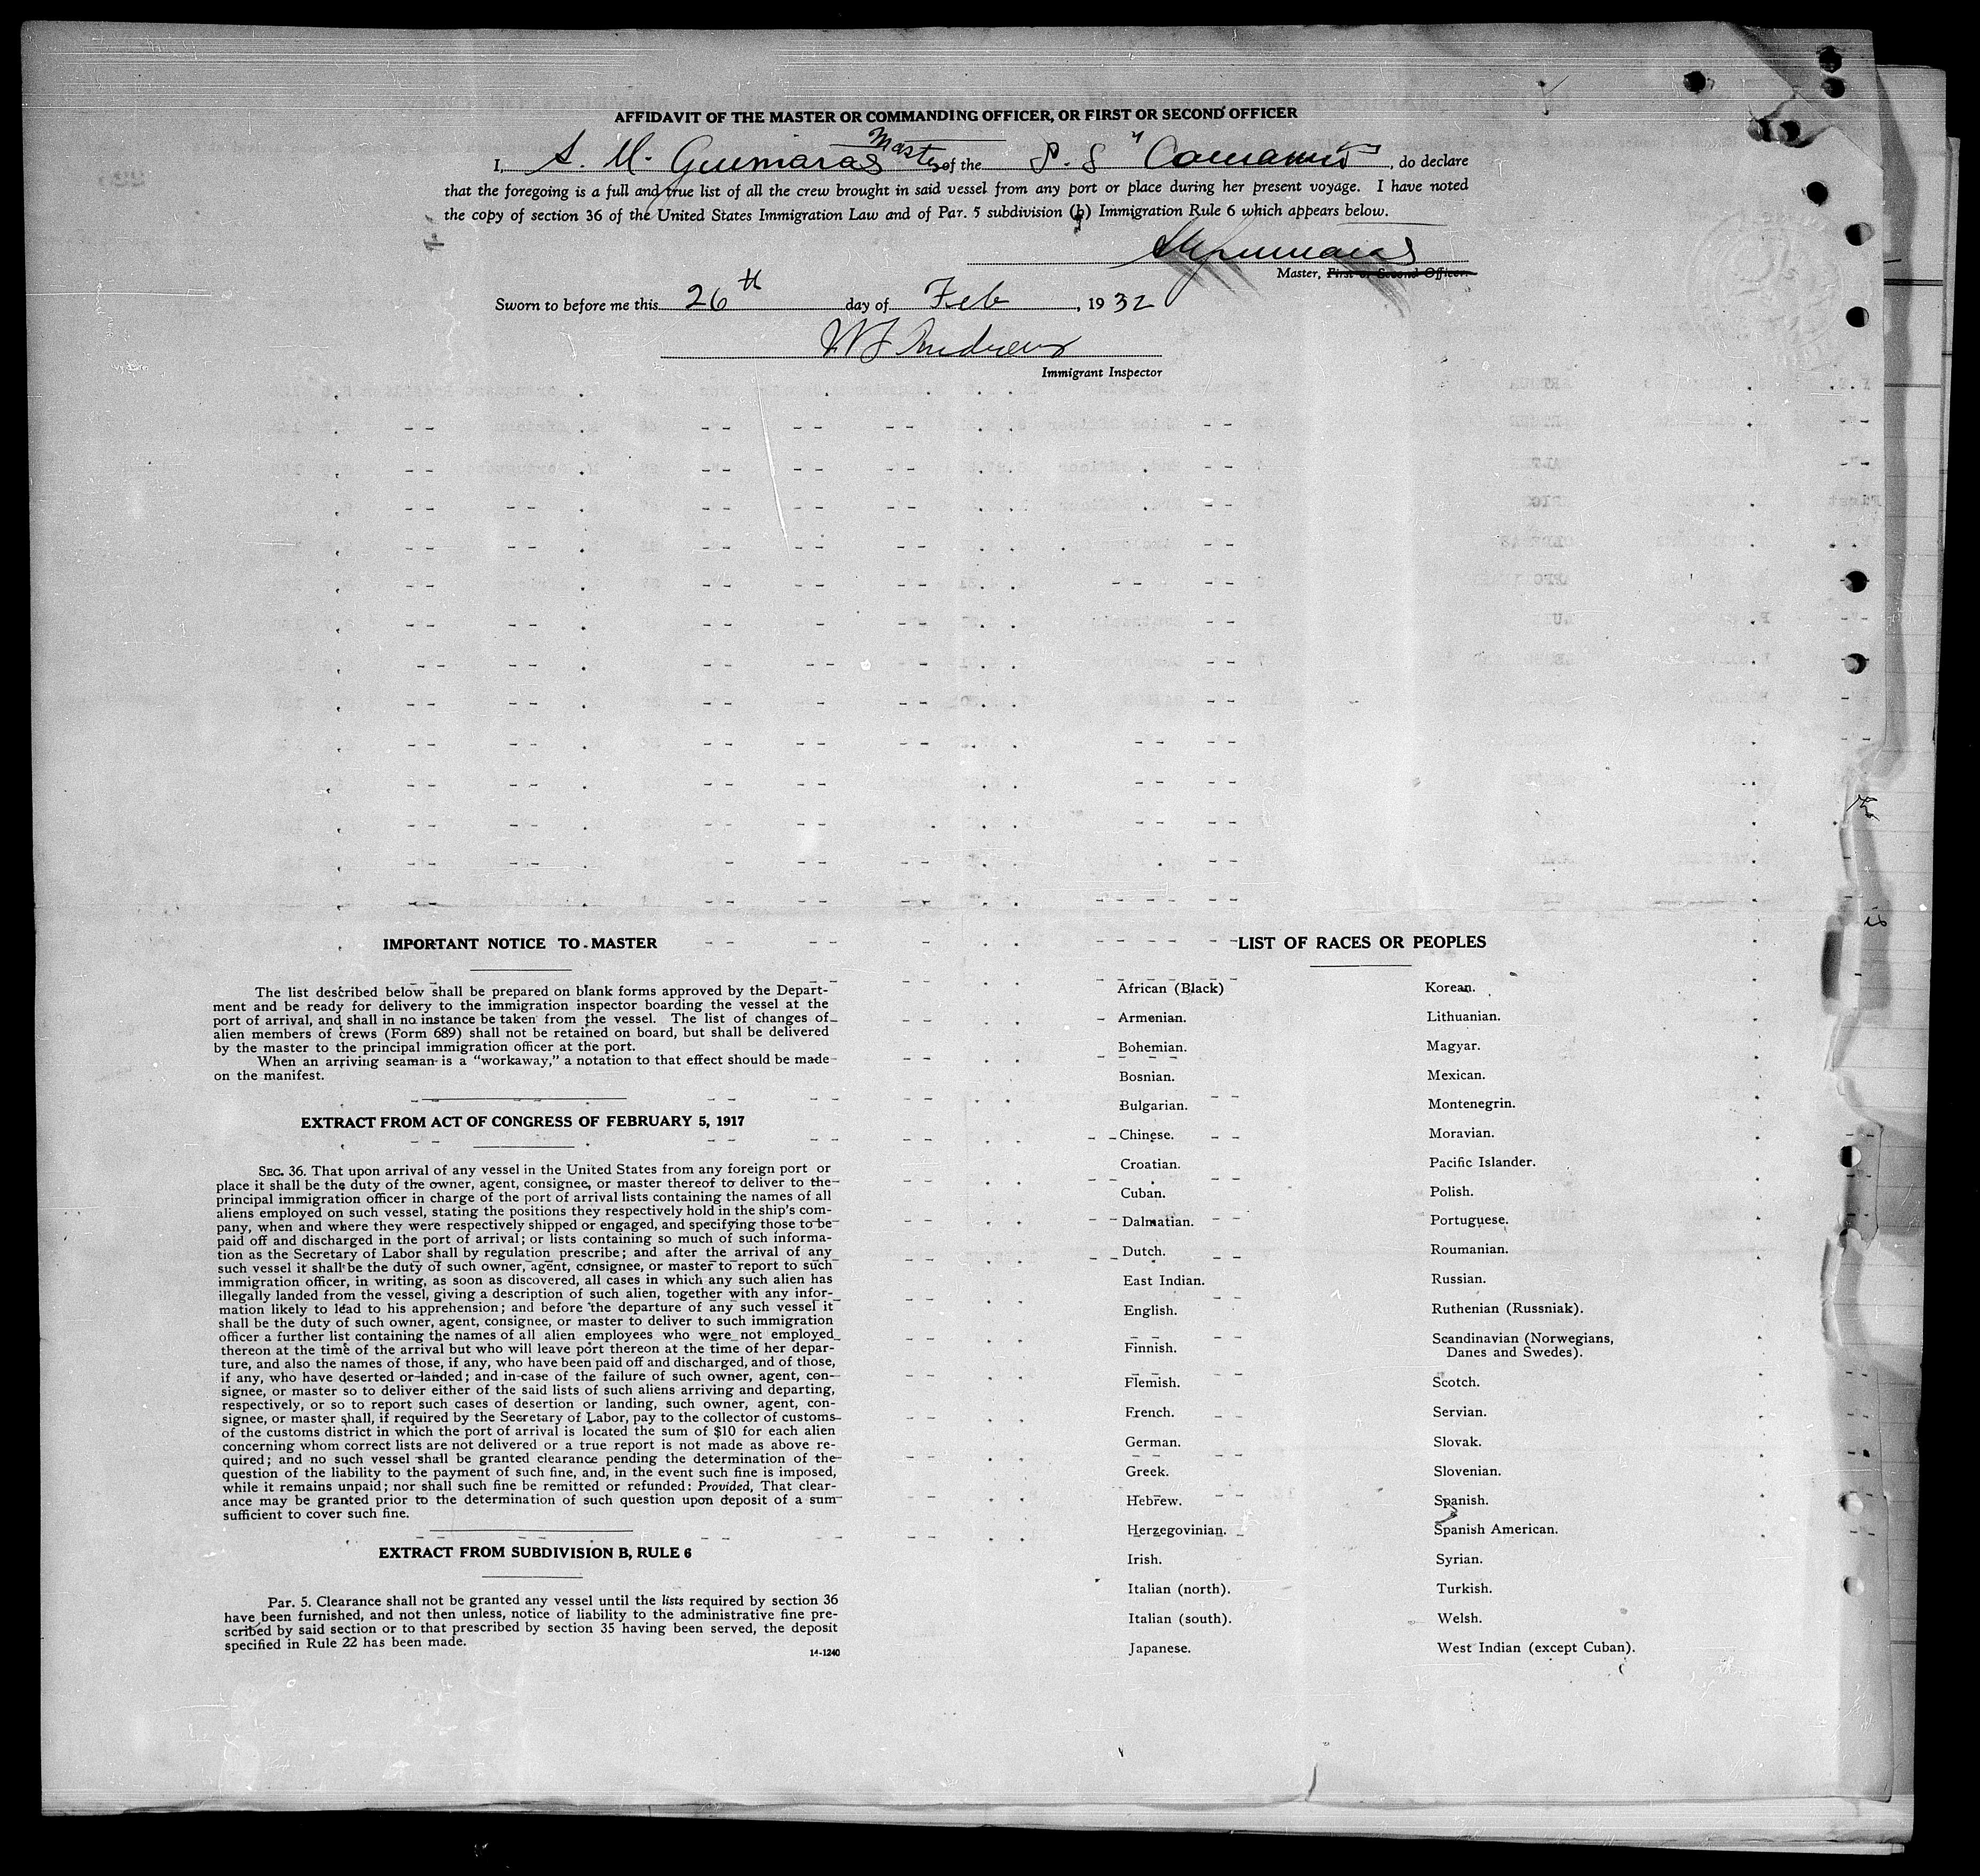 AFFIDAVIT OF THE MASTER OR COMMANDING OFFICER, OR FIRST OR SECOND OFFICER
I, Master of the S.S , do declare
that the foregoing is a full and true list of all the crew brought in said vessel from any port or place during her present voyage. I have noted
the copy of section 36 of the United States Immigration Law and of Par. 5 subdivision (b) Immigration Rule 6 which appears below.
Master, First or Second Officer.
Sworn to before me this 26th day of Feb, 1932
W Andrews
Immigrant Inspector
IMPORTANT NOTICE TO MASTER
The list described below shall be prepared on blank forms approved by the Depart-
ment and be ready for delivery to the immigration inspector boarding the vessel at the
port of arrival, and shall in no instance be taken from the vessel. The list of changes of
alien members of crews (Form 689) shall not be retained on board, but shall be delivered
by the master to the principal immigration officer at the port.
When an arriving seaman is a "workaway," a notation to that effect should be made
on the manifest.
EXTRACT FROM ACT OF CONGRESS OF FEBRUARY 5, 1917
SEC. 36. That upon arrival of any vessel in the United States from any foreign port or
place it shall be the duty of the owner, agent, consignee, or master thereof to deliver to the
principal immigration officer in charge of the port of arrival lists containing the names of all
aliens employed on such vessel, stating the positions they respectively hold in the ship's com-
pany, when and where they were respectively shipped or engaged, and specifying those to be
paid off and discharged in the port of arrival; or lists containing so much of such informa-
tion as the Secretary of Labor shall by regulation prescribe; and after the arrival of any
such vessel it shall be the duty of such owner, agent, consignee, or master to report to such
immigration officer, in writing, as soon as discovered, all cases in which any such alien has
illegally landed from the vessel, giving a description of such alien, together with any infor-
mation likely to lead to his apprehension; and before the departure of any such vessel it
shall be the duty of such owner, agent, consignee, or master to deliver to such immigration
officer a further list containing the names of all alien employees who were not employed
thereon at the time of the arrival but who will leave port thereon at the time of her depar-
ture, and also the names of those, if any, who have been paid off and discharged, and of those,
if any, who have deserted or landed; and in case of the failure of such owner, agent, con-
signee, or master so to deliver either of the said lists of such aliens arriving and departing,
respectively, or so to report such cases of desertion or landing, such owner, agent, con-
signee, or master shall, if required by the Secretary of Labor, pay to the collector of customs
of the customs district in which the port of arrival is located the sum of $10 for each alien
concerning whom correct lists are not delivered or a true report is not made as above re-
quired; and no such vessel shall be granted clearance pending the determination of the
question of the liability to the payment of such fine, and, in the event such fine is imposed,
while it remains unpaid; nor shall such fine be remitted or refunded: Provided, That clear-
ance may be granted prior to the determination of such question upon deposit of a sum
sufficient to cover such fine.
EXTRACT FROM SUBDIVISION B, RULE 6
Par. 5. Clearance shall not be granted any vessel until the lists required by section 36
have been furnished, and not then unless, notice of liability to the administrative fine pre-
scribed by said section or to that prescribed by section 35 having been served, the deposit
specified in Rule 22 has been made.
14-1240
LIST OF RACES OR PEOPLES
African (Black)
Armenian.
Bohemian.
Bosnian.
Bulgarian.
Chinese.
Croatian.
Cuban.
Dalmatian.
Dutch.
East Indian.
English.
Finnish.
Flemish.
French.
German.
Greek.
Hebrew.
Herzegovinian.
Irish.
Italian (north).
Italian (south).
Japanese.
Korean.
Lithuanian.
Magyar.
Mexican.
Montenegrin.
Moravian.
Pacific Islander.
Polish.
Portuguese.
Roumanian.
Russian.
Ruthenian (Russniak).
Scandinavian (Norwegians,
Danes and Swedes).
Scotch.
Servian.
Slovak.
Slovenian.
Spanish.
Spanish American.
Syrian.
Turkish.
Welsh.
West Indian (except Cuban).